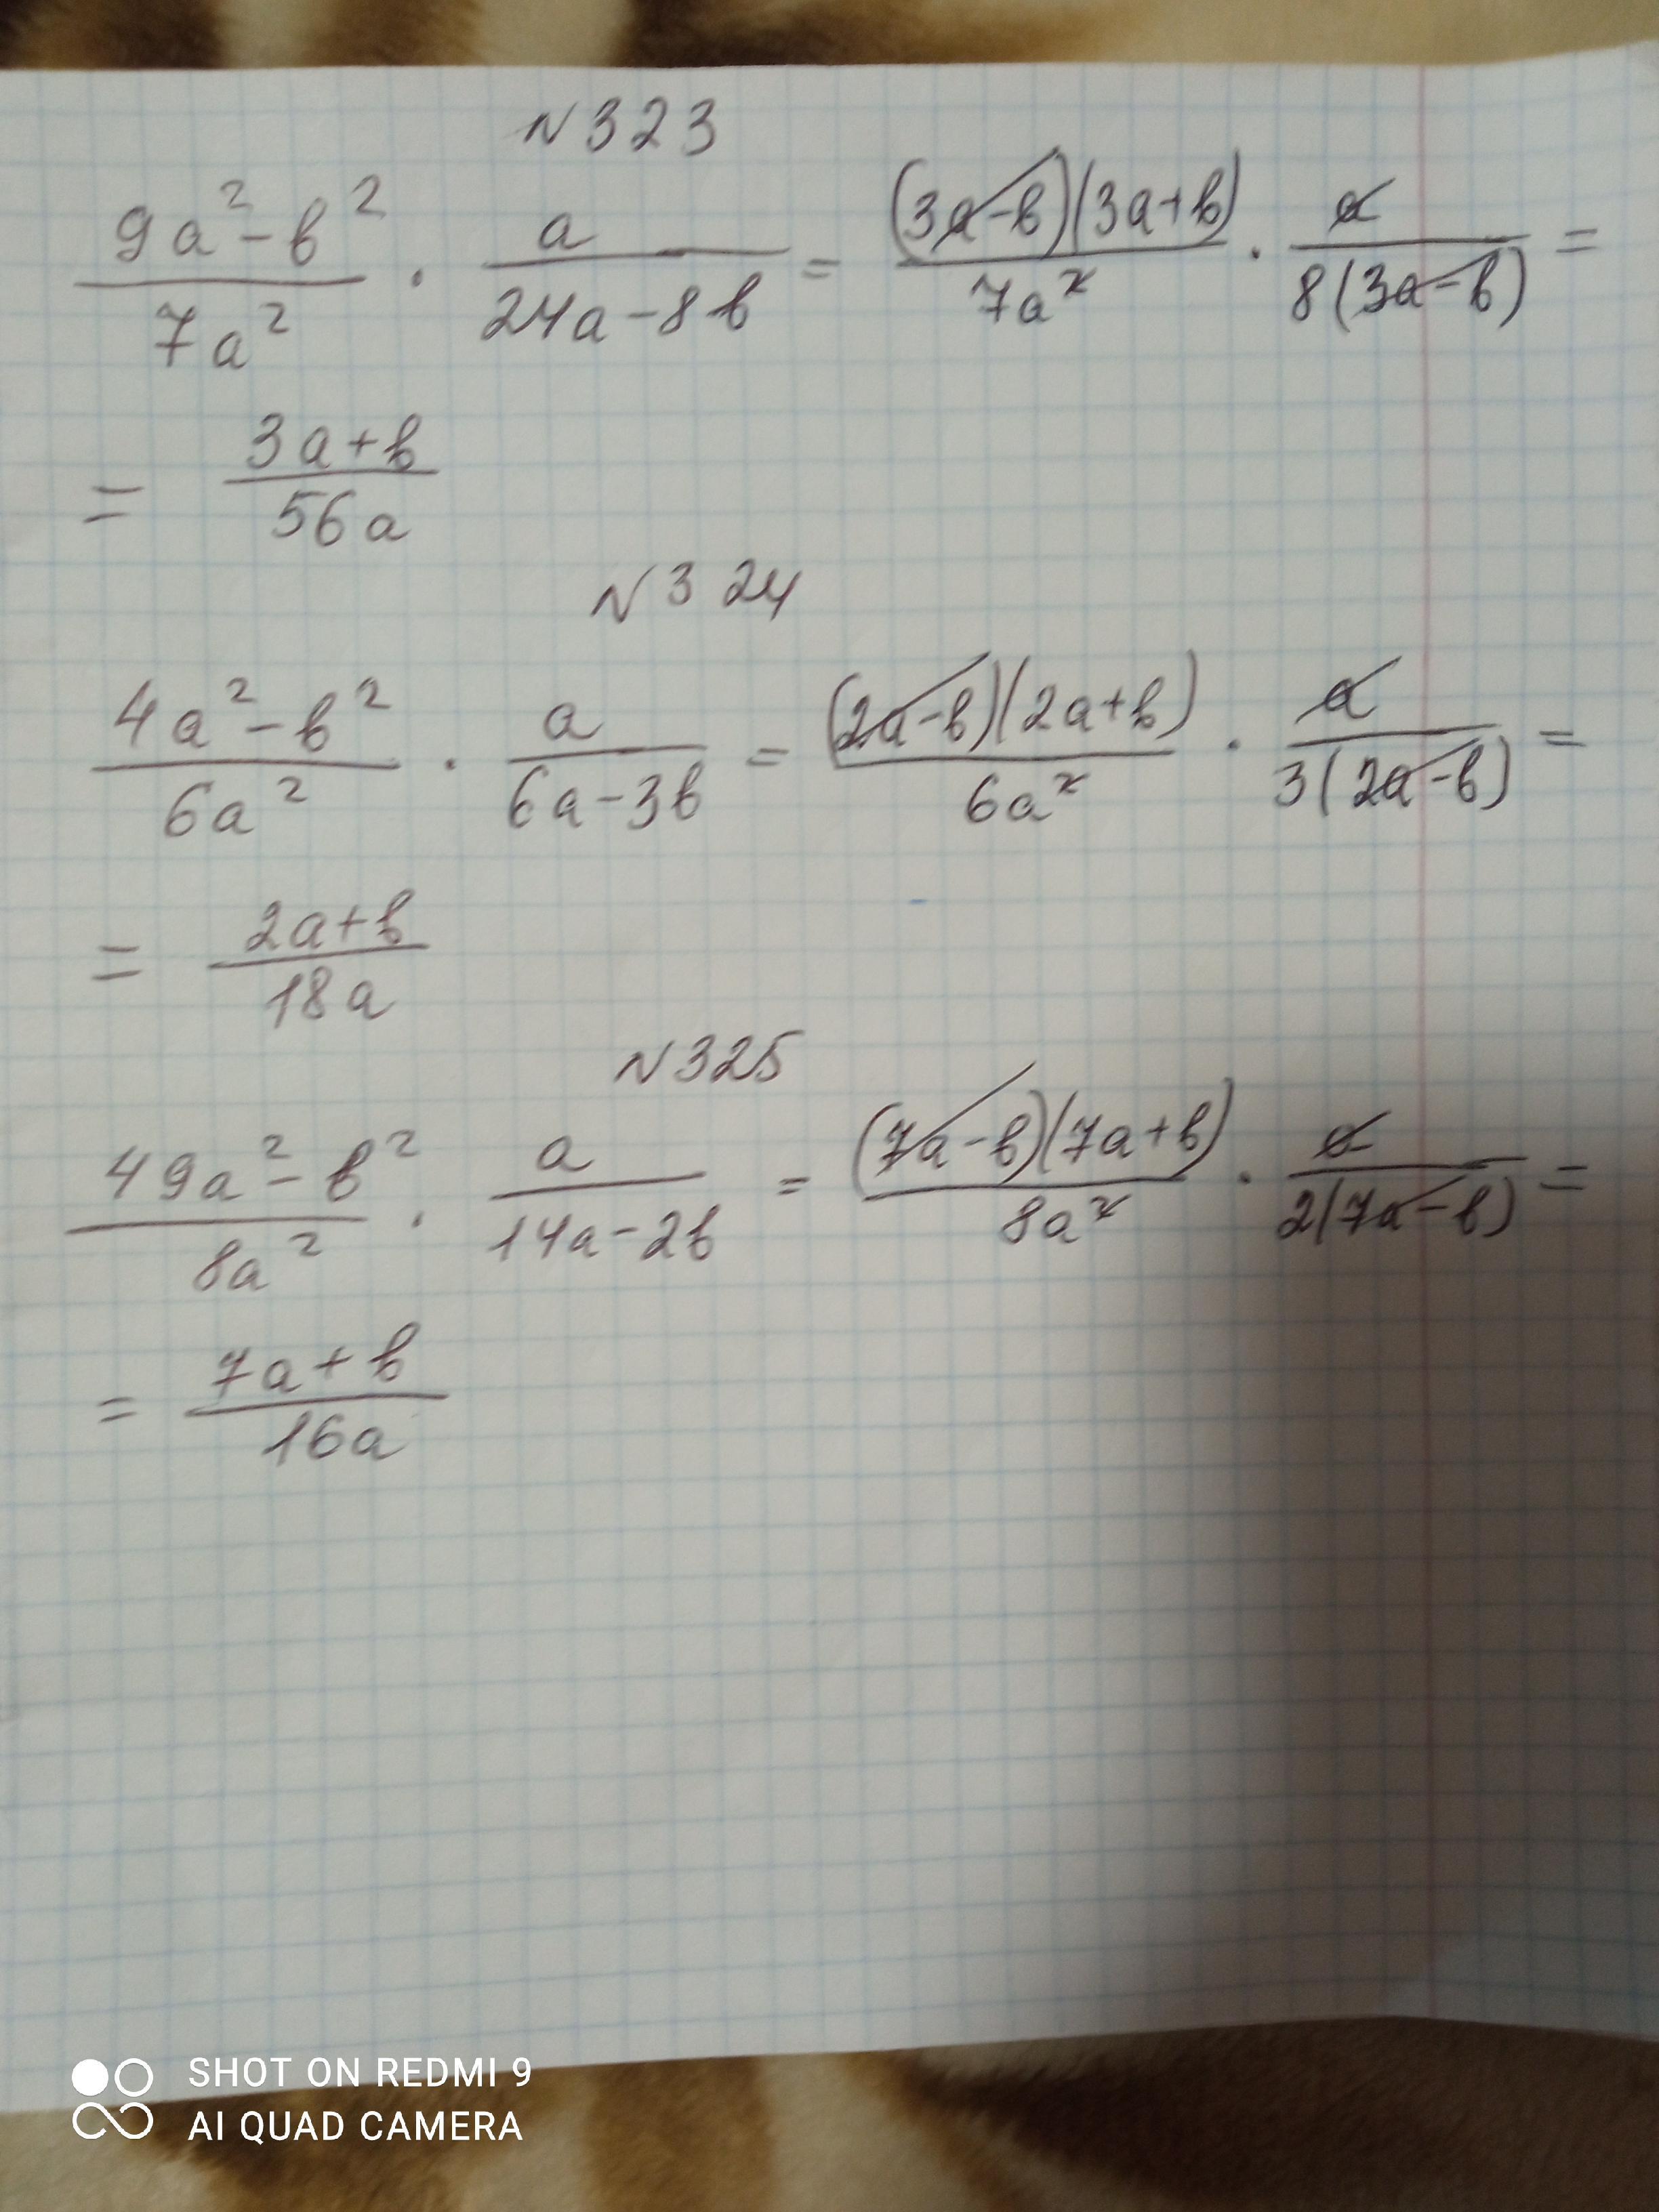 N323
(9a²-b²)/(7a²) · a/(24a-8b) = ((3a-b)(3a+b))/(7a²) · a/(8(3a-b)) =
= (3a+b)/(56a)
N324
(4a²-b²)/(6a²) · a/(6a-3b) = ((2a-b)(2a+b))/(6a²) · a/(3(2a-b)) =
= (2a+b)/(18a)
N325
(49a²-b²)/(8a²) · a/(14a-2b) = ((7a-b)(7a+b))/(8a²) · a/(2(7a-b)) =
= (7a+b)/(16a)
SHOT ON REDMI 9
AI QUAD CAMERA